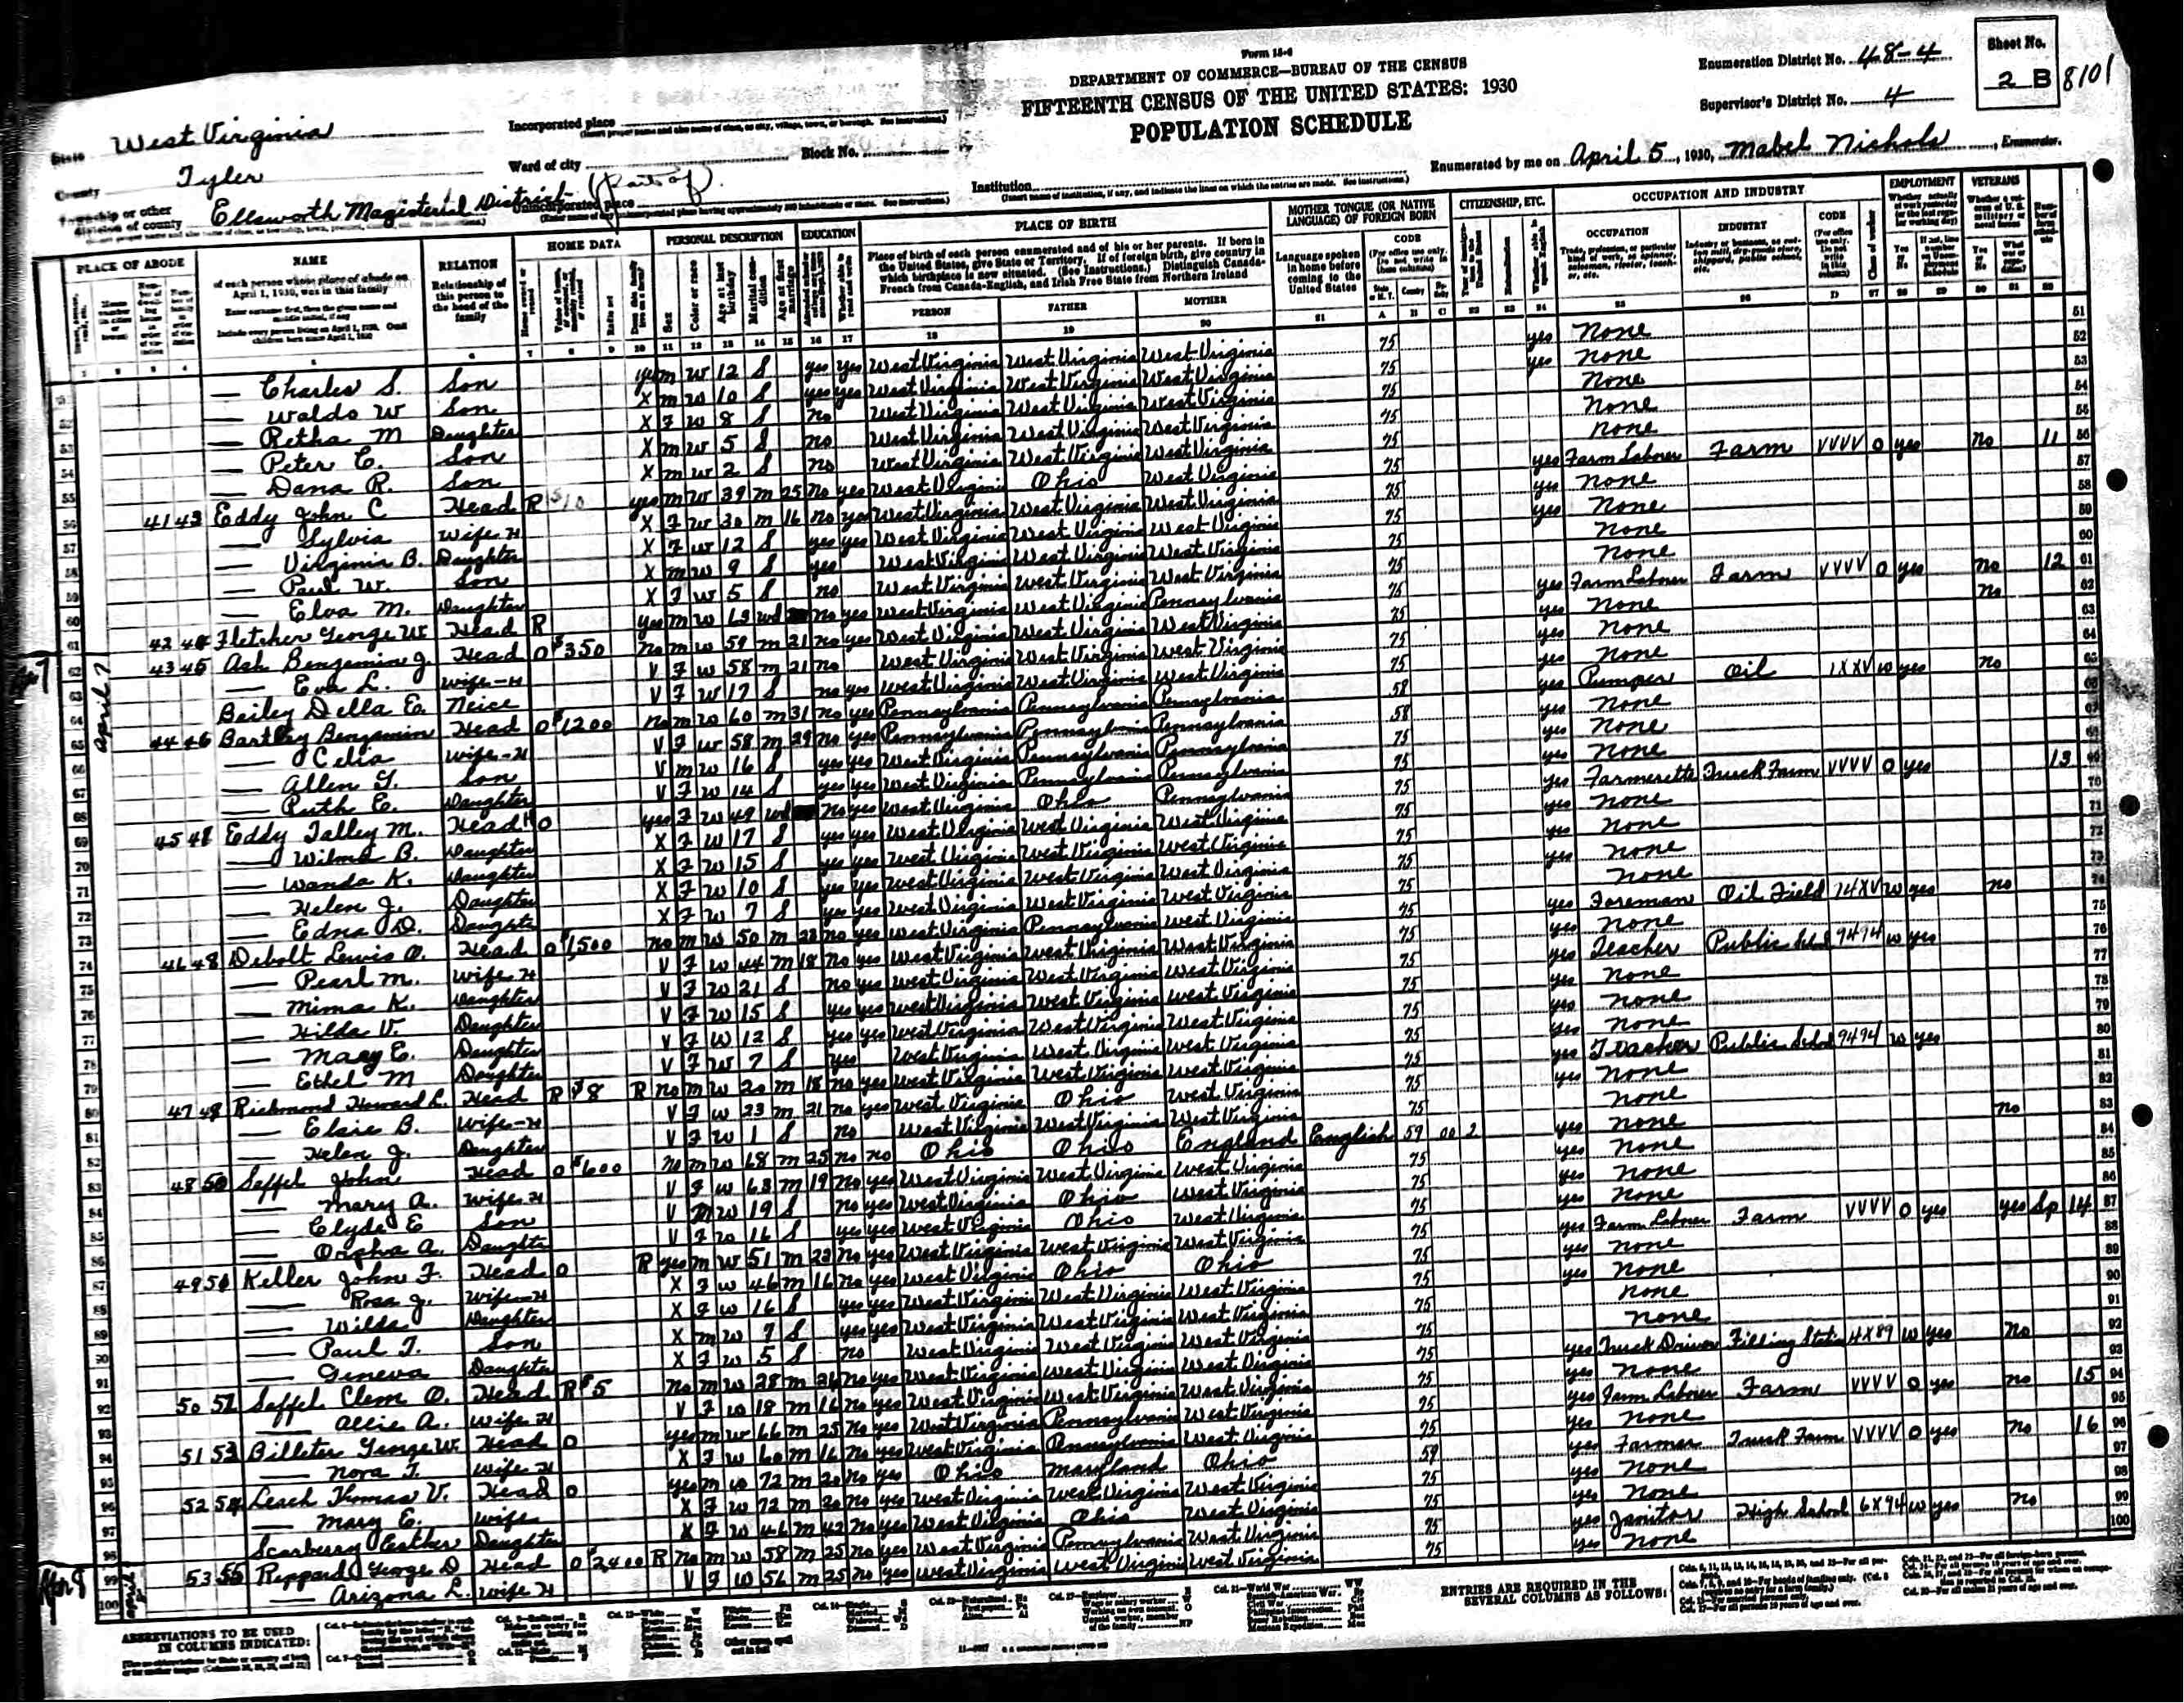 Form 15-6
DEPARTMENT OF COMMERCE—BUREAU OF THE CENSUS
FIFTEENTH CENSUS OF THE UNITED STATES: 1930
POPULATION SCHEDULE
Enumeration District No. 48-4
Supervisor's District No. 4
Sheet No.
2 B
8101
State West Virginia
County Tyler
Township or other division of county Ellsworth Magisterial District (Part of)
Incorporated place
Ward of city
Block No.
Unincorporated place
Institution
Enumerated by me on April 5, 1930, Mabel Nichols, Enumerator.
PLACE OF ABODE
NAME
of each person whose place of abode on April 1, 1930, was in this family
RELATION
Relationship of this person to the head of the family
HOME DATA
PERSONAL DESCRIPTION
EDUCATION
PLACE OF BIRTH
Place of birth of each person enumerated and of his or her parents. If born in the United States, give State or Territory. If of foreign birth, give country in which birthplace is now situated. (See Instructions.) Distinguish Canada-French from Canada-English, and Irish Free State from Northern Ireland
PERSON FATHER MOTHER
MOTHER TONGUE (OR NATIVE LANGUAGE) OF FOREIGN BORN
Language spoken in home before coming to the United States
CODE
CITIZENSHIP, ETC.
OCCUPATION AND INDUSTRY
OCCUPATION
INDUSTRY
CODE
EMPLOYMENT
VETERANS
51 — Charles S. Son yes m w 12 S yes yes West Virginia West Virginia West Virginia 75 yes None
52 — Waldo W Son X m w 10 S yes yes West Virginia West Virginia West Virginia 75 yes None
53 — Retha M Daughter X F w 8 S no West Virginia West Virginia West Virginia 75 None
54 — Peter C. Son X m w 5 S no West Virginia West Virginia West Virginia 75 None
55 — Dana R. Son X m w 2 S no West Virginia West Virginia West Virginia 75 None
56 41 43 Eddy John C Head R $10 yes m w 39 m 25 no yes West Virginia Ohio West Virginia 75 yes Farm Laborer Farm VVVV O yes no 11
57 — Sylvia Wife-H X F w 30 m 16 no yes West Virginia West Virginia West Virginia 75 yes None
58 — Virginia B. Daughter X F w 12 S yes yes West Virginia West Virginia West Virginia 75 yes None
59 — Paul W. Son X m w 9 S yes West Virginia West Virginia West Virginia 75 None
60 — Elva M. Daughter X F w 5 S no West Virginia West Virginia West Virginia 75 None
61 42 44 Fletcher George W Head R yes m w wd no yes West Virginia West Virginia Pennsylvania 75 yes Farm Laborer Farm VVVV O yes no 12
62 43 45 Ash Benjamin J. Head O $350 no m w 59 m 21 no yes West Virginia West Virginia West Virginia 75 yes None no
63 — Eva L. Wife-H V F w 58 m 21 no West Virginia West Virginia West Virginia 75 yes None
64 Bailey Della E. Neice V F w 17 S no yes West Virginia West Virginia West Virginia 75 yes None
65 44 46 Bartley Benjamin Head O $1200 no m w 60 m 31 no yes Pennsylvania Pennsylvania Pennsylvania 58 yes Pumper Oil 1XXV w yes no
66 — Celia Wife-H V F w 58 m 29 no yes Pennsylvania Pennsylvania Pennsylvania 58 yes None
67 — Allen G. Son V m w 16 S yes yes West Virginia Pennsylvania Pennsylvania 75 yes None
68 — Ruth E. Daughter V F w 14 S yes yes West Virginia Pennsylvania Pennsylvania 75 yes None
69 45 47 Eddy Talley M. Head H O yes F w 49 wd no yes West Virginia Ohio Pennsylvania 75 yes Farmerette Truck Farm VVVV O yes 13
70 — Wilma B. Daughter X F w 17 S yes yes West Virginia West Virginia West Virginia 75 yes None
71 — Wanda K. Daughter X F w 15 S yes yes West Virginia West Virginia West Virginia 75 yes None
72 — Helen J. Daughter X F w 10 S yes yes West Virginia West Virginia West Virginia 75 yes None
73 — Edna D. Daughter X F w 7 S yes yes West Virginia West Virginia West Virginia 75 None
74 46 48 Debolt Lewis O. Head O $1,500 no m w 50 m 23 no yes West Virginia Pennsylvania West Virginia 75 yes Foreman Oil Field 14XV w yes no
75 — Pearl M. Wife-H V F w 44 m 18 no yes West Virginia West Virginia West Virginia 75 yes None
76 — Mima K. Daughter V F w 21 S no yes West Virginia West Virginia West Virginia 75 yes Teacher Public School 9494 w yes
77 — Hilda V. Daughter V F w 15 S yes yes West Virginia West Virginia West Virginia 75 yes None
78 — Mary E. Daughter V F w 12 S yes yes West Virginia West Virginia West Virginia 75 yes None
79 — Ethel M Daughter V F w 7 S yes West Virginia West Virginia West Virginia 75 None
80 47 49 Richmond Howard L. Head R $8 R no m w 20 m 18 no yes West Virginia West Virginia West Virginia 75 yes Teacher Public School 9494 w yes
81 — Elsie B. Wife-H V F w 23 m 21 no yes West Virginia Ohio West Virginia 75 yes None
82 — Helen J. Daughter V F w 1 S no West Virginia West Virginia West Virginia 75 None
83 48 50 Saffel John Head O $600 no m w 68 m 25 no no Ohio Ohio England English 59 00 2 yes None no
84 — Mary A. Wife-H V F w 63 m 19 no yes West Virginia West Virginia West Virginia 75 yes None
85 — Clyde E Son V m w 19 S no yes West Virginia Ohio West Virginia 75 yes None
86 — Orpha A. Daughter V F w 16 S yes yes West Virginia Ohio West Virginia 75 yes None
87 49 51 Keller John F. Head O R yes m w 51 m 22 no yes West Virginia West Virginia West Virginia 75 yes Farm Laborer Farm VVVV O yes yes Sp 14
88 — Rosa J. Wife-H X F w 46 m 16 no yes West Virginia Ohio Ohio 75 yes None
89 — Wilda Daughter X F w 16 S yes yes West Virginia West Virginia West Virginia 75 yes None
90 — Paul T. Son X m w 7 S yes yes West Virginia West Virginia West Virginia 75 None
91 — Geneva Daughter X F w 5 S no West Virginia West Virginia West Virginia 75 None
92 50 52 Saffel Clem O. Head R $5 no m w 28 m 26 no yes West Virginia West Virginia West Virginia 75 yes Truck Driver Filling Station 4X89 w yes No
93 — Allie A. Wife-H V F w 18 m 16 no yes West Virginia West Virginia West Virginia 75 yes None
94 51 53 Billeter George W. Head O yes m w 66 m 25 no yes West Virginia Pennsylvania West Virginia 75 yes Farm Laborer Farm VVVV O yes no 15
95 — Nora F. Wife-H X F w 60 m 16 no yes West Virginia Pennsylvania West Virginia 75 yes None
96 52 54 Leach Thomas V. Head O yes m w 72 m 20 no yes Ohio Maryland Ohio 59 yes Farmer Truck Farm VVVV O yes No 16
97 — Mary E. Wife X F w 72 m 20 no yes West Virginia West Virginia West Virginia 75 yes None
98 Scarberry Esther Daughter X F w 46 m 42 no yes West Virginia Ohio West Virginia 75 yes None
99 53 55 Reppard George D Head O $2,400 R no m w 58 m 25 no yes West Virginia Pennsylvania West Virginia 75 yes Janitor High School 6X94 w yes no
100 — Arizona L. Wife-H V F w 56 m 25 no yes West Virginia West Virginia West Virginia 75 yes None
April 7
ABBREVIATIONS TO BE USED IN COLUMNS INDICATED:
ENTRIES ARE REQUIRED IN THE SEVERAL COLUMNS AS FOLLOWS: